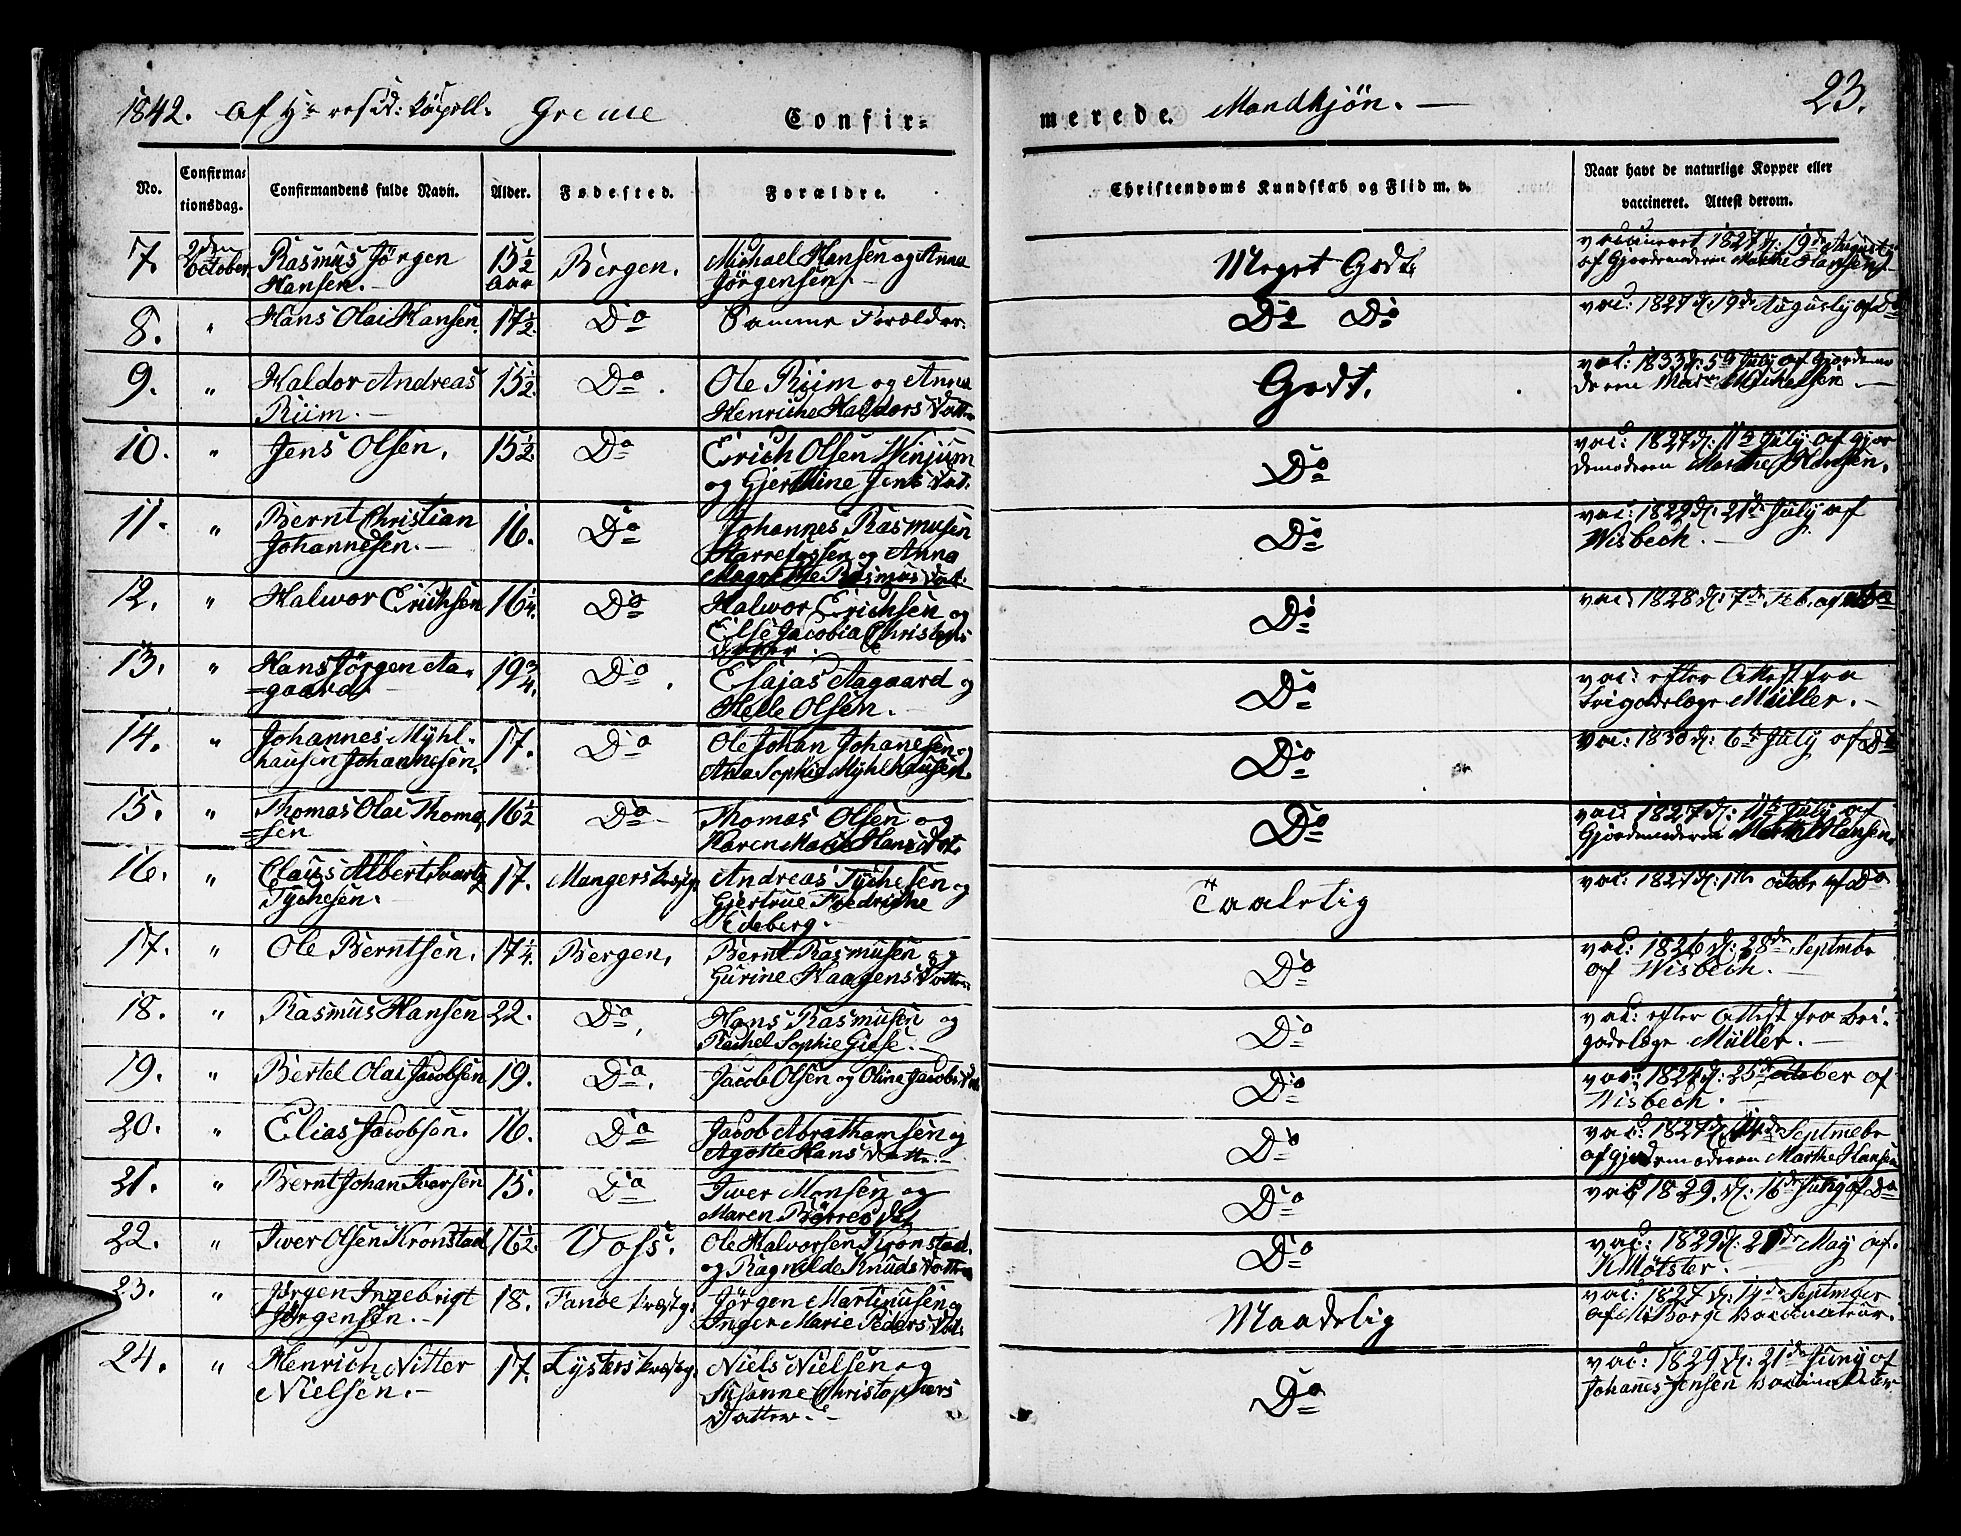 1842. Af Hr resid: Capell. Greve Confir-
merede. Mandkjøn. — 23.
No. Confirmationsdag. Confirmandens fulde Navn. Alder. Fødested. Forældre. Christendoms Kundskab og Flid m. v. Naar havt de naturlige Kopper eller vaccineret. Attest derom.
7. 2den October Rasmus Jörgen Hansen.- 15½ Aar Bergen. Michael Hansen og Anna Jörgensen.- Meget Godt. vaccineret 1827 d: 19de Augusty af Gjordemoderen Marthe Hansen.
8. " Hans Olai Hansen. 17½. Do Samme Forælder. Do Do vac: 1827 d: 19de Augusty af Do
9. " Haldor Andreas Riim.- 15½. Do. Ole Riim og Anna Henriche Haldors Datt. Godt. vac: 1833 d: 5te July af Gjordemoderen Michelsen.-
10. " Jens Olsen. 15½. Do Erich Olsen Winjum og Gjerthine Jens Dat. Do vac: 1827 d: 11te July af Gjordemoderen Marthe Hansen.
11. " Bernt Christian Johannesen.- 16. Do Johannes Rasmusen og Anna Magrethe Rasmus Dat. Do vac: 1829 d: 21de July af Wisbech.-
12. " Halwor Erichsen 16¼. Do Halwor Erichsen og Else Jacobia Christens Datter. Do vac: 1828 d: 7de Feb. af Do
13. " Hans Jörgen Aagaard 19¾. Do. Esajas Aagaard og Helle Olsen.- Do vac: efter Attest fra Brigadelæge Müller.-
14. " Johannes Myhlhausen Johannesen. 17. Do Ole Johan Johanesen og Ana Sophie Myhlhausen. Do vac: 1830 d: 6te July af Do
15. " Thomas Olai Thomasen 16½ Do Thomas Olsen og Karen Marie Hans Dat. Do vac: 1827 d: 11te July af Gjordemoderen Marthe Hansen.
16. " Claus Albert Tychesen. 17. Mangers Andreas Tychesen og Gjertrue Fredriche Wedeberg. Taalelig vac: 1827 d: 1te Octobr af Do
17. " Ole Berntsen. 17¼. Bergen. Bernt Rasmusen og Gurine Haagens Datter Do vac: 1826 d: 28de Septmbr af Wisbech.-
18. " Rasmus Hansen 22. Do Hans Rasmusen og Rachel Sophie Giese.- Do vac: efter Attest fra Brigadelæge Müller.-
19. " Bertel Olai Jacobsen 19. Do. Jacob Olsen og Oline Jacobs Dat Do vac: 1824 d: 25de October af Wisbech.-
20. " Elias Jacobsen. 16. Do Jacob Abrathamsen og Agotte Hans Datt. Do vac: 1827 d: 14de Septmebr af Gjordemoderen Marthe Hansen
21. " Bernt Johan Iversen 15. Do Iwer Monsen og Maren Börres Dat Do vac: 1829. d: 16de Juny af Do
22. " Iwer Olsen Kronstad 16½. Voss. Ole Halvorsen Kronstad. og Ragnilde Knuds Datter Do vac: 1829 d: 21de May af. Kløtster.-
23. " Jörgen Ingebrigt Jörgensen.- 18. Fanöe Jörgen Martinusen og Inger Marie Peders Dat. Maadelig vac: 1827 d: 14de Septmber af Borge Vaccinateur.
24. " Henrich Nitter Nielsen.- 17. Lysters Niels Nielsen og Susanne Christophers Datter.- Do vac: 1829 d: 21de Juny af Johanes Jensen Vaccinateur